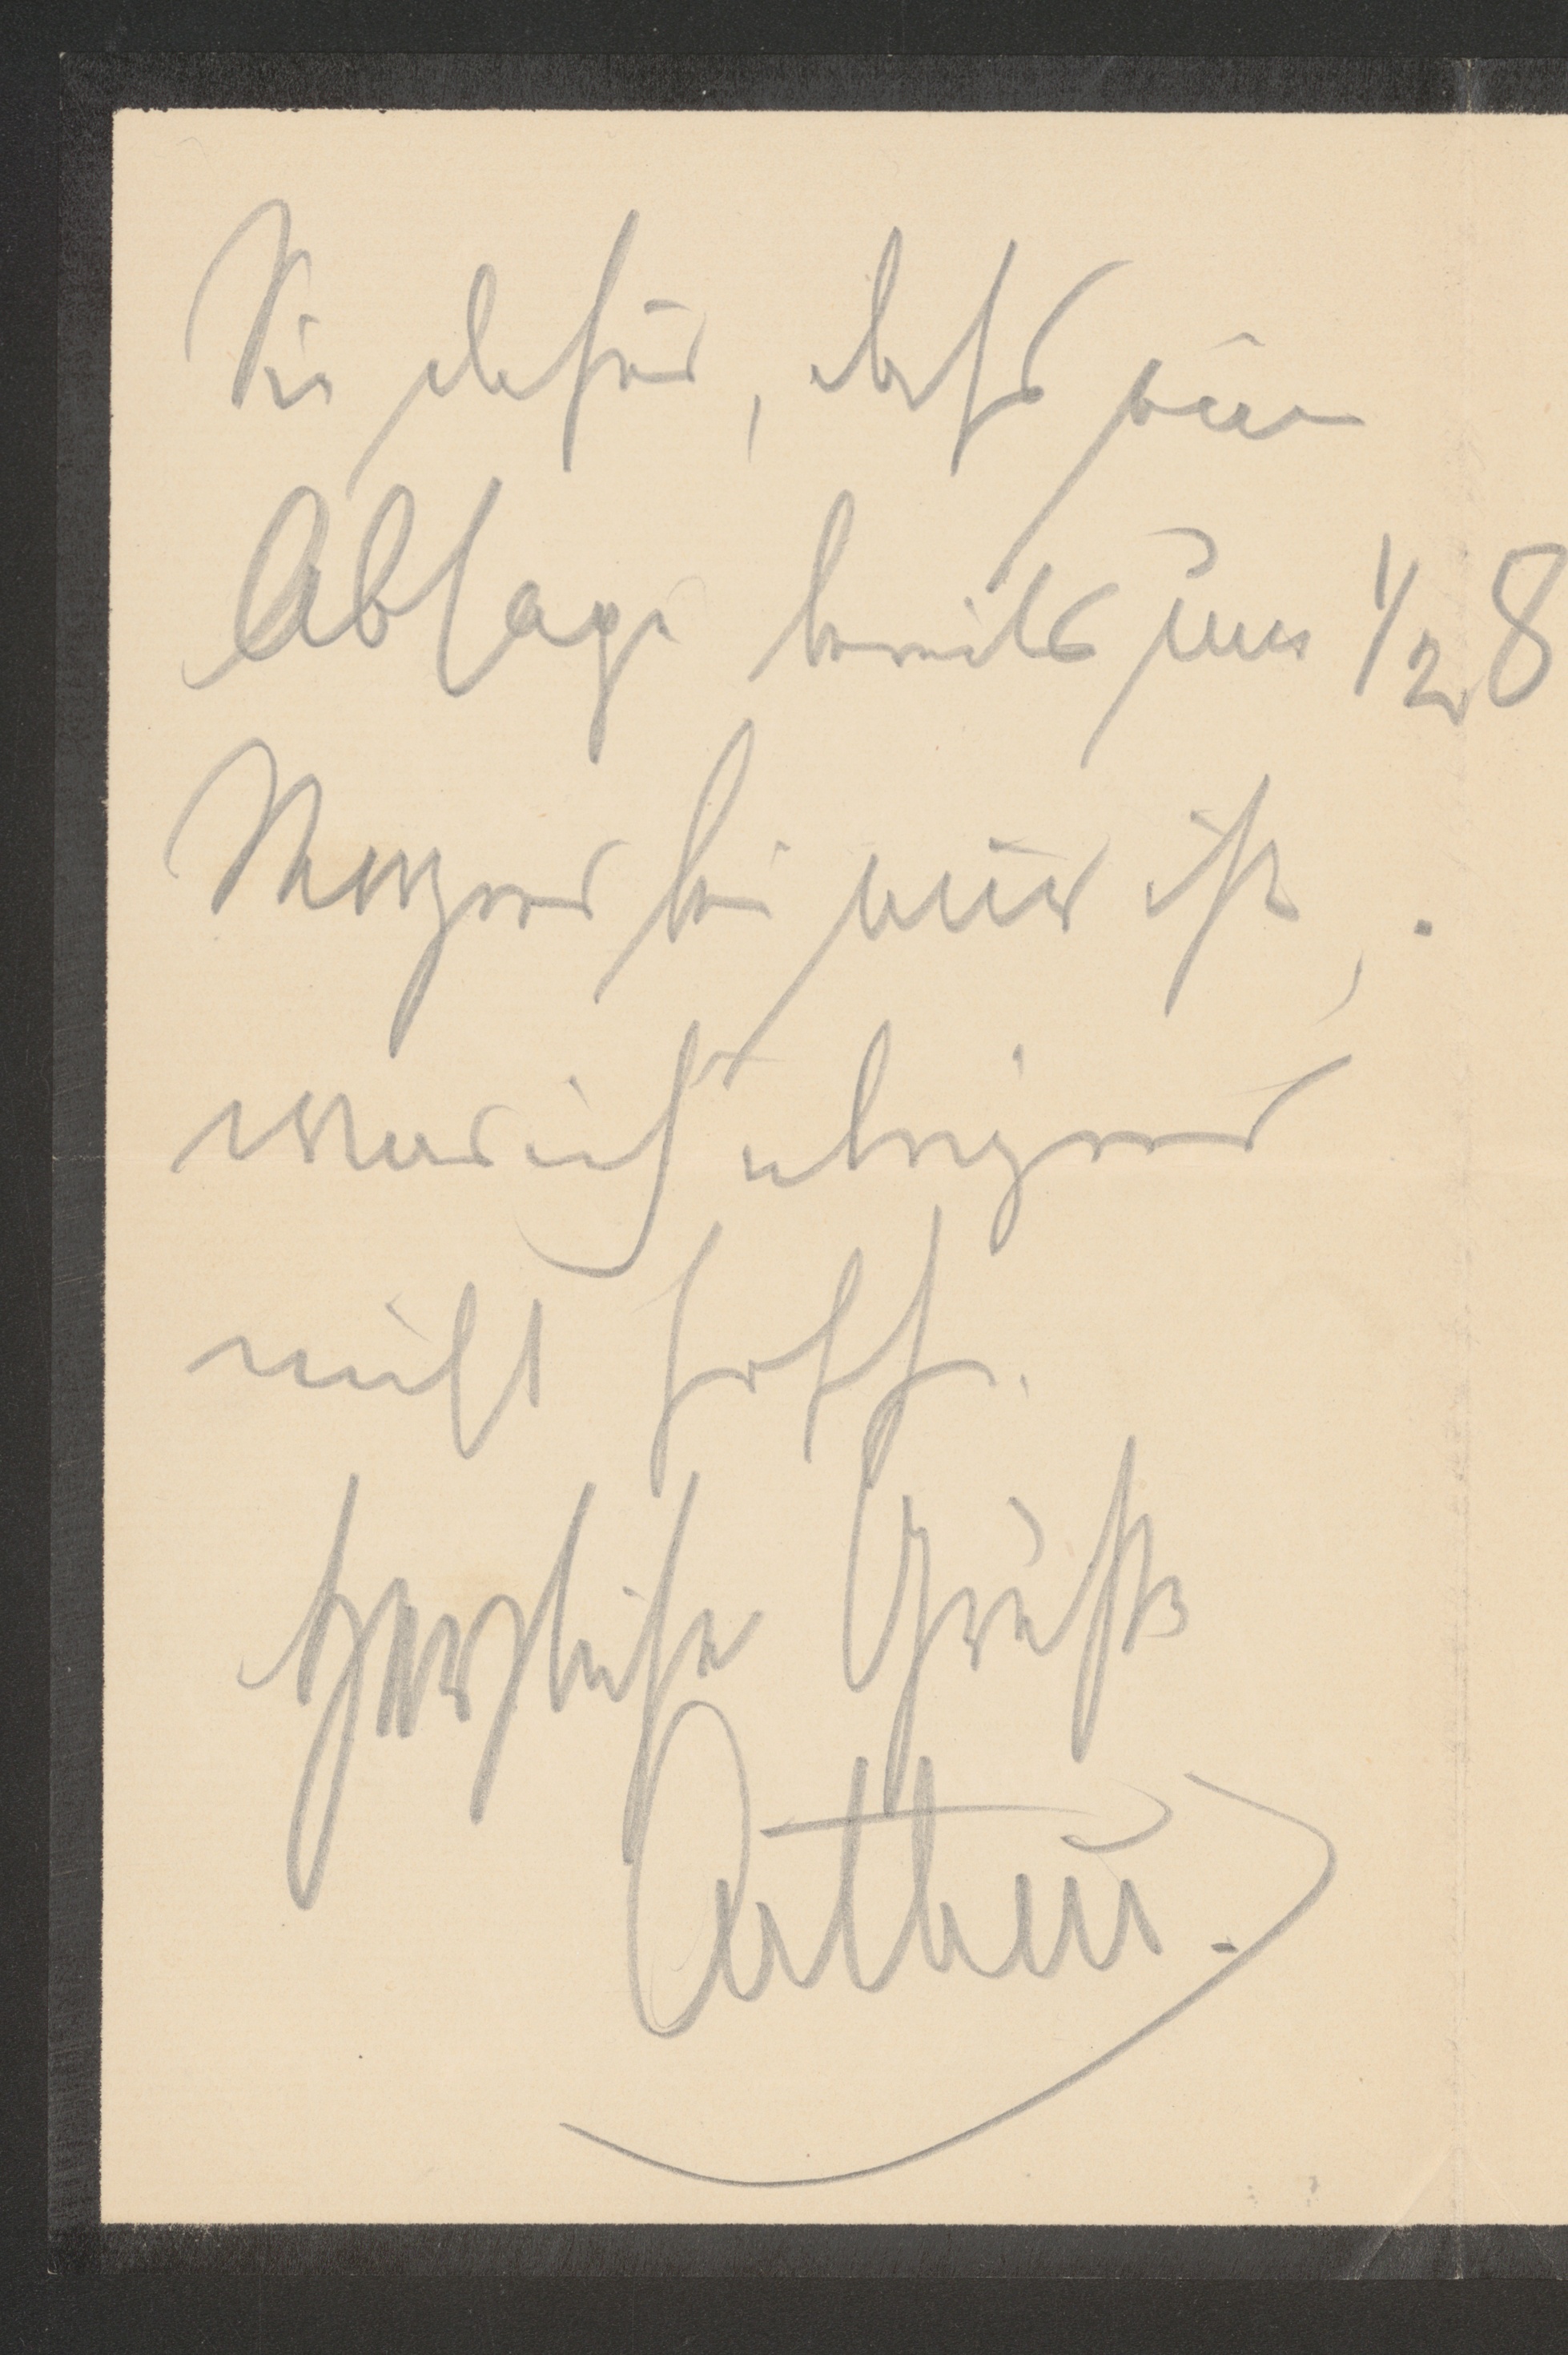 Sie dafür, dass eine
Absage bereits um 1/2 8
Morgens bei mir ist,
was ich übrigens
nicht hoffe.
Herzlichen Gruß
Arthur.